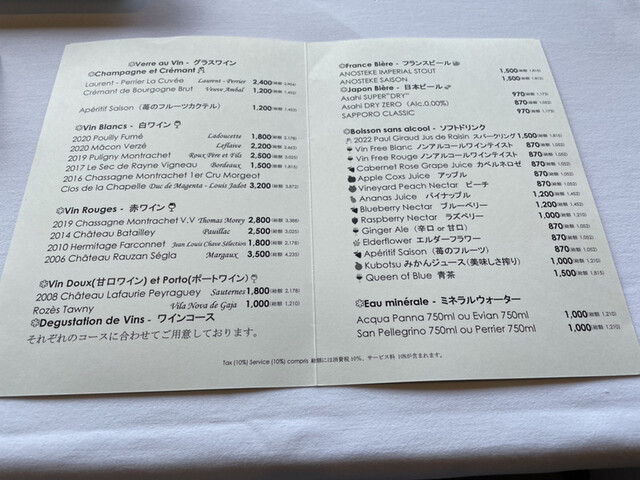 Verre au Vin - グラスワイン
Champagne et Crémant
Laurent - Perrier La Cuvée Laurent - Perrier 2,400
Crémant de Bourgogne Brut Veuve Ambal 1,200(総額 1,452)
Apéritif Saison (苺のフルーツカクテル) 1,200(総額 1,452)
Vin Blancs - 白ワイン
2020 Pouilly Fumé Ladoucette 1,800(総額 2,178)
2020 Mâcon Verzé Leflaive 2,200
2019 Puligny Montrachet Roux Père et Fils 2,500
2017 Le Sec de Rayne Vigneau Bordeaux 1,500(総額 1,815)
2016 Chassagne Montrachet 1er Cru Morgeot
Clos de la Chapelle Duc de Magenta - Louis Jadot 3,200(総額 3,872)
Vin Rouges - 赤ワイン
2019 Chassagne Montrachet V.V Thomas Morey 2,800
2014 Château Batailley Pauillac 2,500(総額 3,025)
2010 Hermitage Farconnet Jean Louis Chave Sélection 1,800(総額 2,178)
2006 Château Rauzan Ségla Margaux 3,500
Vin Doux(甘口ワイン) et Porto(ポートワイン)
2008 Château Lafaurie Peyraguey Sauternes 1,800(総額 2,178)
Rozès Tawny Vila Nova de Gaja 1,000(総額 1,210)
Degustation de Vins - ワインコース
それぞれのコースに合わせてご用意しております。
France Bière - フランスビール
ANOSTEKE IMPERIAL STOUT 1,500(総額 1,815)
ANOSTEKE SAISON
Japon Bière - 日本ビール
Asahi SUPER"DRY" 970(総額 1,173)
Asahi DRY ZERO (Alc.0.00%) 870(総額 1,052)
SAPPORO CLASSIC 970(総額 1,173)
Boisson sans alcool - ソフトドリンク
2022 Paul Giraud Jus de Raisin スパークリング 1,500(総額 1,815)
Vin Free Blanc ノンアルコールワインテイスト 870(総額 1,052)
Vin Free Rouge ノンアルコールワインテイスト 870(総額 1,052)
Cabernet Rose Grape Juice カベルネロゼ
Apple Coxs Juice アップル
Vineyard Peach Nectar ピーチ 870(総額 1,052)
Ananas Juice パイナップル 1,200
Blueberry Nectar ブルーベリー 1,200
Raspberry Nectar ラズベリー 1,000(総額 1,210)
Ginger Ale (辛口 or 甘口) 870(総額 1,052)
Elderflower エルダーフラワー 870(総額 1,052)
Apéritif Saison (苺のフルーツ) 870(総額 1,052)
Kubotsu みかんジュース(美味しさ搾り)
Queen of Blue 青茶 1,500(総額 1,815)
Eau minérale - ミネラルウォーター
Acqua Panna 750ml ou Evian 750ml 1,000(総額 1,210)
San Pellegrino 750ml ou Perrier 750ml 1,000(総額 1,210)
Tax (10%) Service (10%) compris 総額には消費税 10%、サービス料 10%が含まれます。